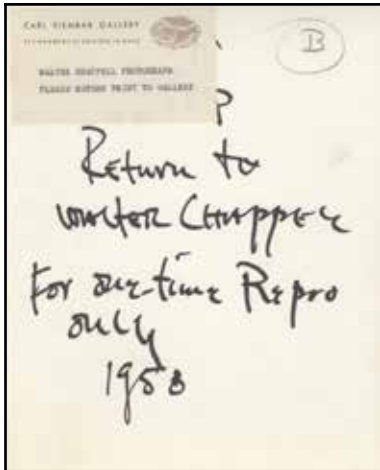 CARL SIEMBAB GALLERY
WALTER CHAPPELL PHOTOGRAPH
PLEASE RETURN PRINT TO GALLERY
B
Return to
WALTER CHAPPELL
For one-time Repro
only
1958